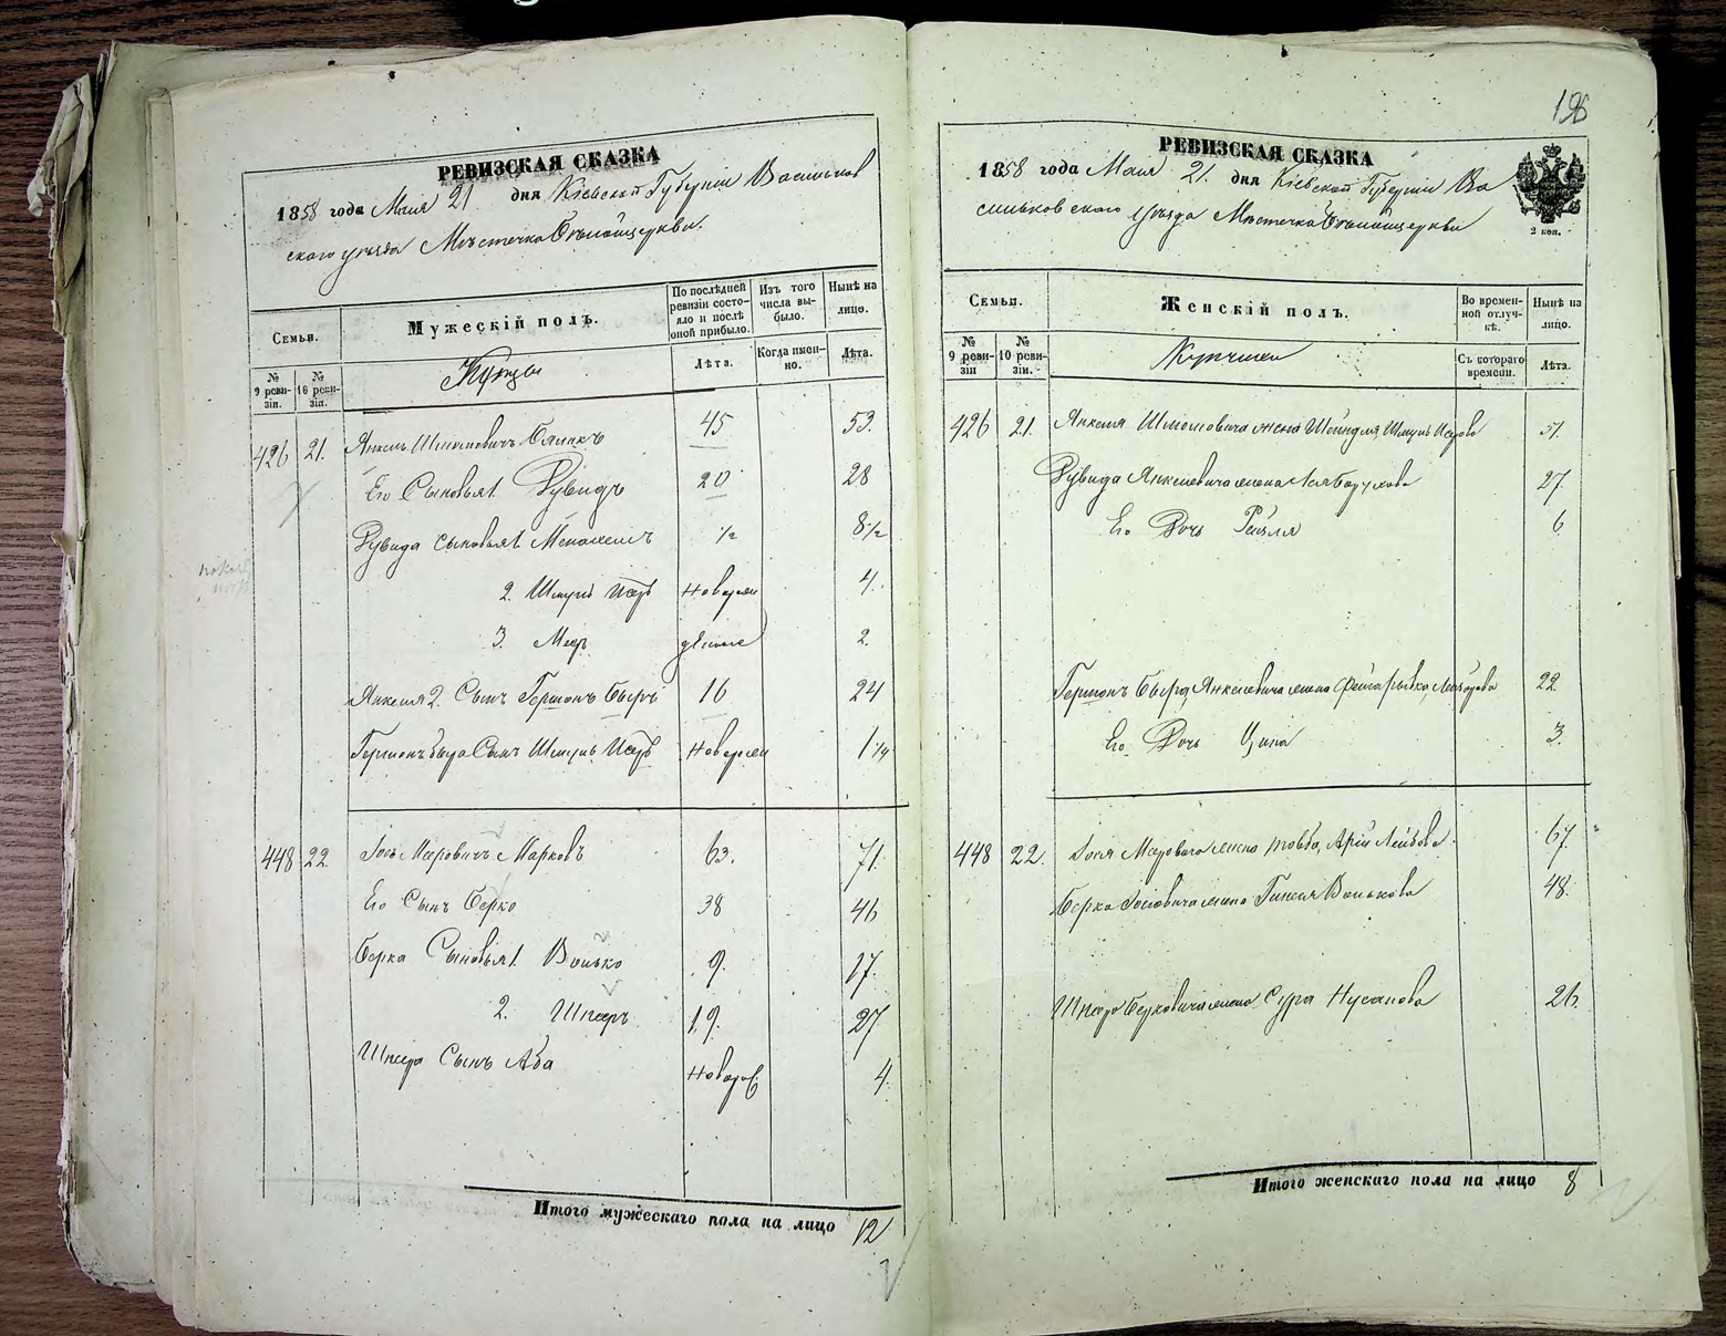 196
РЕВИЗСКАЯ СКАЗКА
1858 года Мая 21 дня Кіевской Губерніи Васильков
скаго уѣзда Мѣстечка Бѣлойцеркви.
Семьи.
Мужескій полъ.
По послѣдней ревизіи состояло и послѣ оной прибыло.
Изъ того числа выбыло.
Нынѣ на лицо.
№ 9 ревизіи.
№ 10 ревизіи.
Купцы
Лѣта.
Когда именно.
Лѣта.
426 21. Янкель Шмулевичъ 45 53.
Его Сыновья 1. Рувидъ 20 28
Рувида Сыновья 1. Менахемъ 1/2 8 1/2
2. Шмуль Исеръ Новорож 4.
3. Меер денные 2.
Янкеля 2. Сынъ Гершонъ Беръ 16 24
Гершонъ Бера Сынъ Шмуль Исеръ Новорож 1 1/4
448 22. Іось Мееровичъ Марковъ 63. 71.
Его Сынъ Берко 38 46
Берка Сыновья 1. Волько 9. 17.
2. Шпееръ 19. 27
Шпеера Сынъ Аба Новорож 4.
Итого мужескаго пола на лицо 12
РЕВИЗСКАЯ СКАЗКА
1858 года Мая 21. дня Кіевской Губерніи Ва
сильковскаго уѣзда Мѣстечка Бѣлойцеркви
2 коп.
Семьи.
Женскій полъ.
Во временной отлучкѣ.
Нынѣ на лицо.
№ 9 ревизіи
№ 10 ревизіи.
Купчихи
Съ котораго времени.
Лѣта.
426 21. Янкеля Шмулевича жена Шейндля, Шмуль Исерова 51.
Рувида Янкелевича жена Лея Борухова 27.
Его Дочь Рейзля 6
Гершонъ Бера Янкелевича жена Фейга Рывка 22.
Его Дочь Ципа 3.
448 22. Іося Мееровича жена Товба, Арій Лейбова 67.
Берка Іосіовича жена Гинеся Волькова 48.
Шпеера Берковича жена Сура Нусанова 26.
Итого женскаго пола на лицо 8